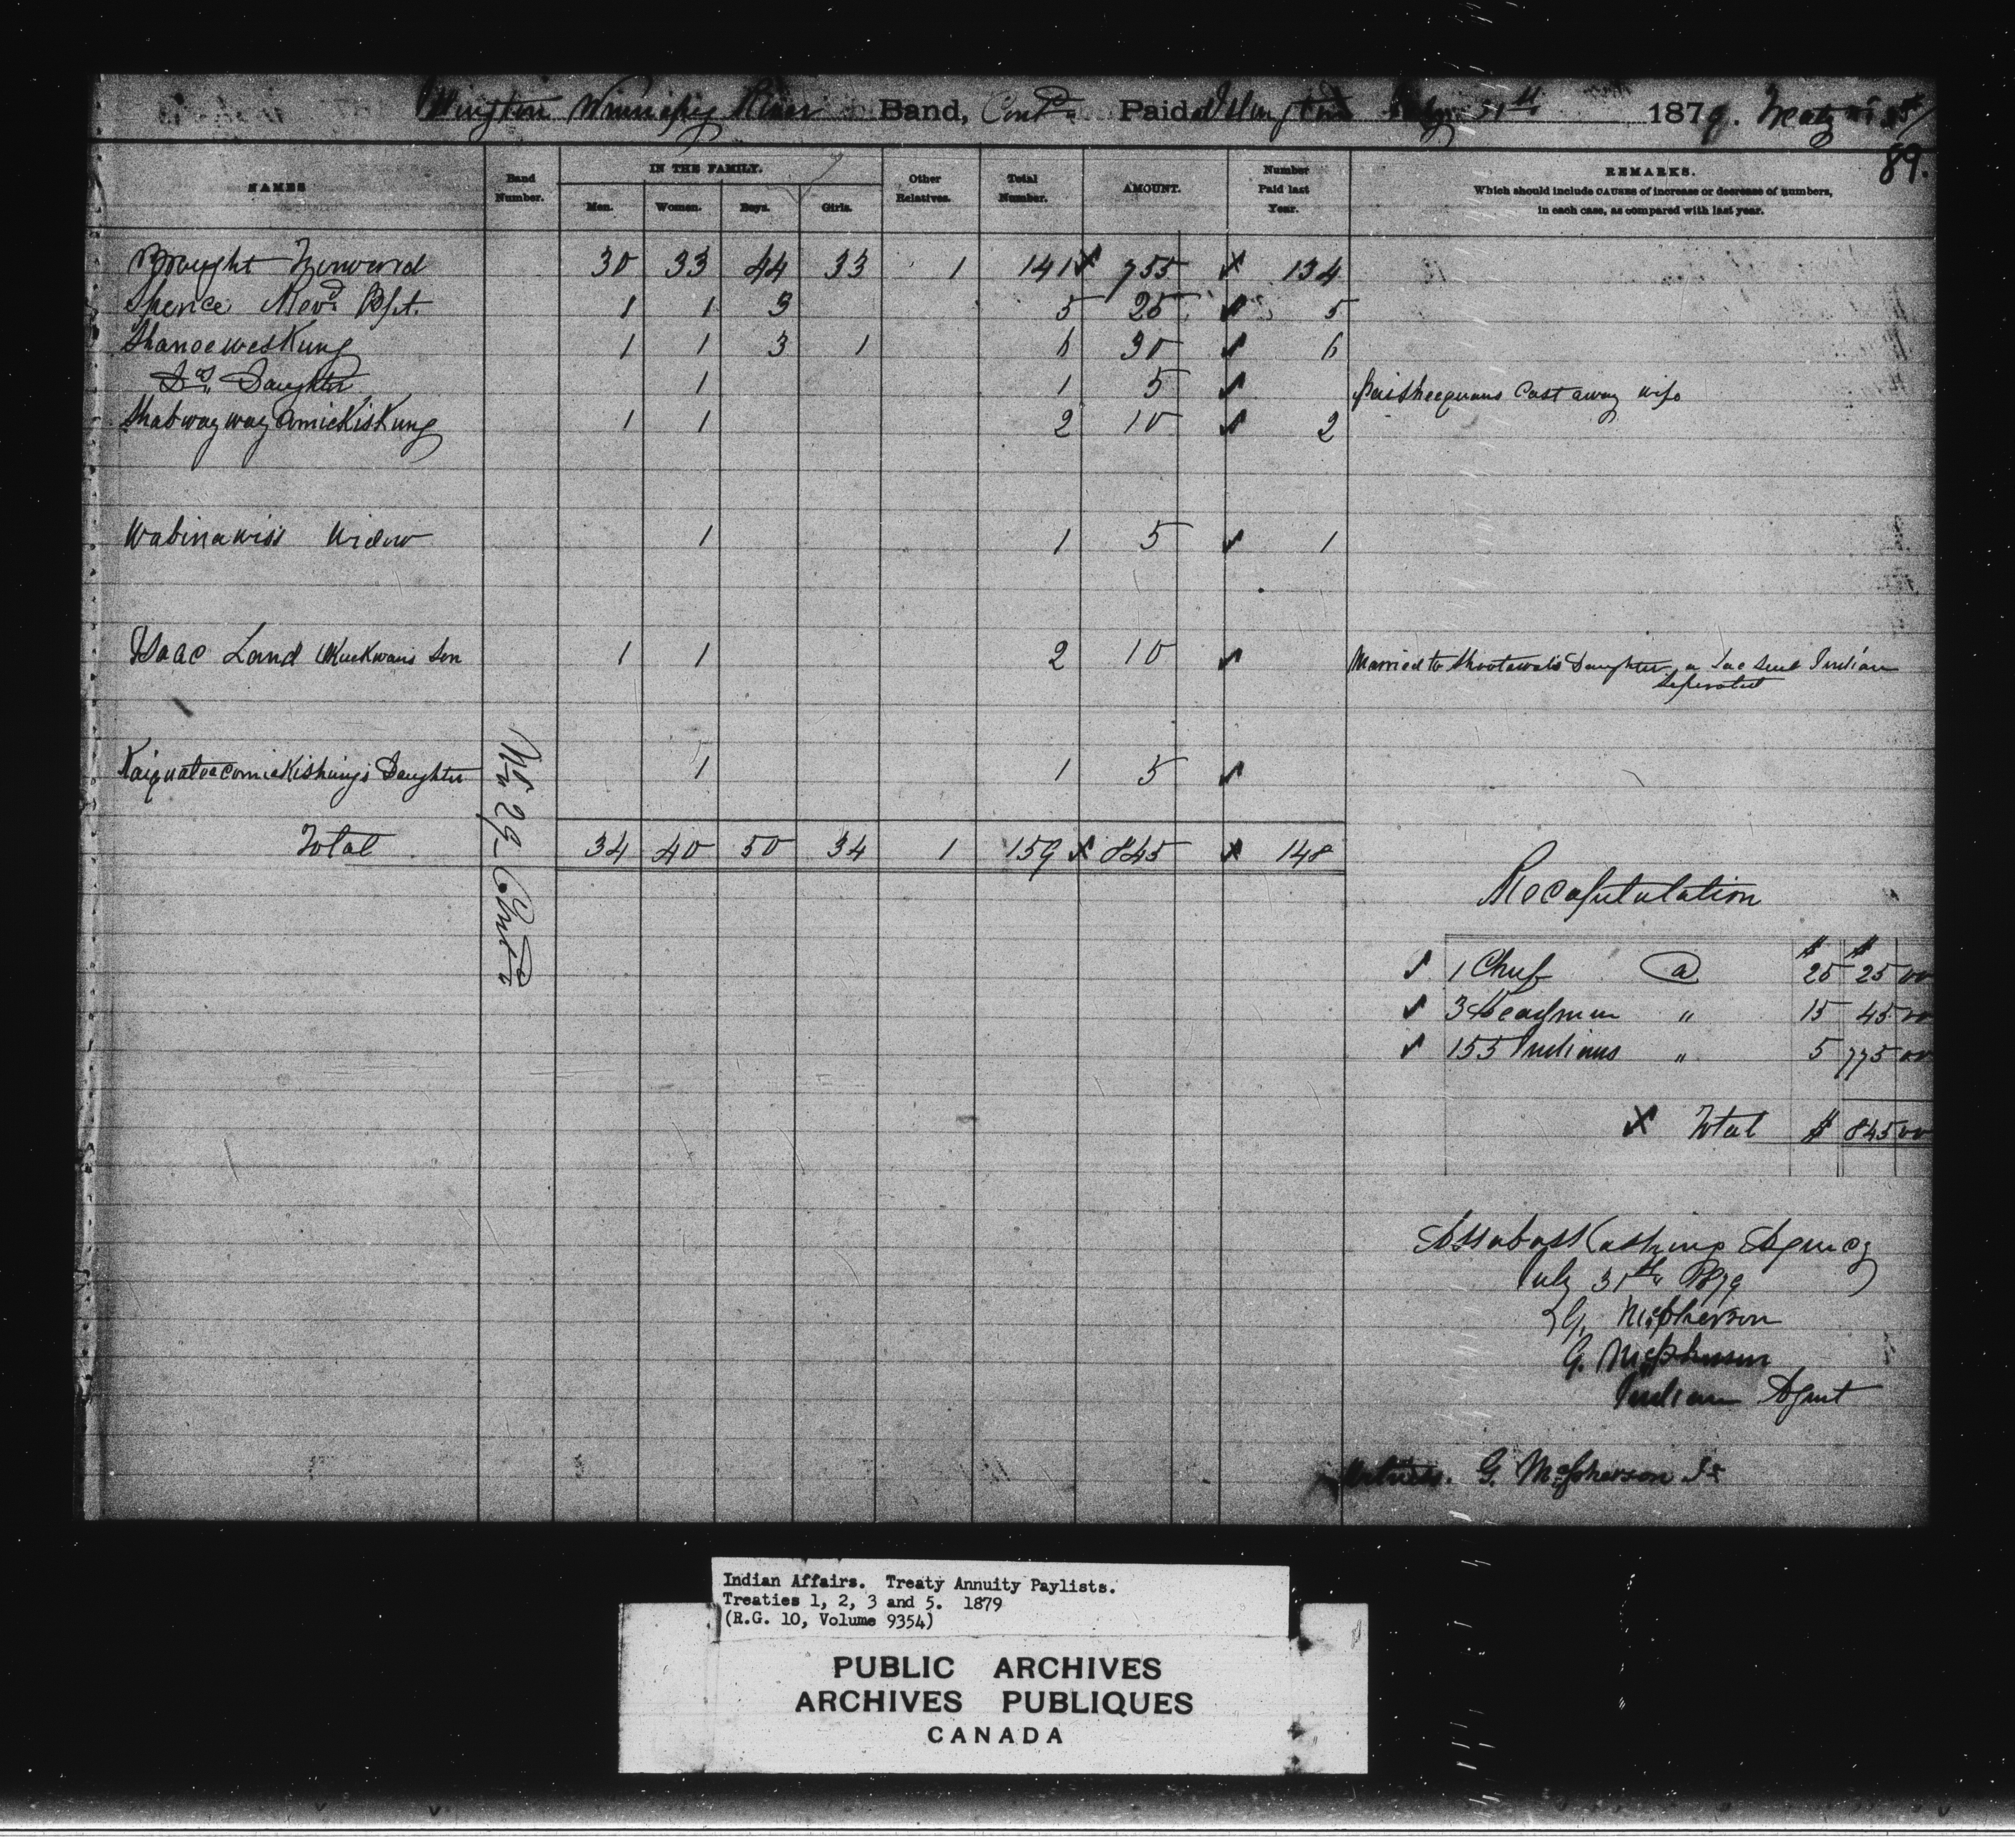 Islington Winnipeg River Band, Cont'd Paid at Islington July 31st 1879. Treaty No 3
89.
NAMES
Band Number.
IN THE FAMILY.
Men. Women. Boys. Girls.
Other Relatives.
Total Number.
AMOUNT.
Number Paid last Year.
REMARKS.
Which should include CAUSES of increase or decrease of numbers,
in each case, as compared with last year.
Brought Forward 30 33 44 33 1 141 x 755 x 134
Spence Revd Bpt. 1 1 3 5 25 5
Shanoeweskung 1 1 3 1 6 30 6
Do Daughter 1 1 5 Paisheequans Cast away wife
Shabwaywayamickiskung 1 1 2 10 2
Wabinawiss Widow 1 1 5 1
Isaac Land Son 1 1 2 10 Married to Daughter, a Lac Seul Indian
Seperated
Kaiquatoacomickishung's Daughter 1 1 5
No 29 Cont'd
Total 34 40 50 34 1 159 x 845 x 148
Recapitulation
$ $
1 Chief @ 25 25 00
3 Headmen " 15 45 00
155 Indians " 5 775 00
x Total $ 845 00
Assabasskashing Agency
July 31st 1879
G. McPherson
G. McPherson
Indian Agent
Witness. G. McPherson Jr
Indian Affairs. Treaty Annuity Paylists.
Treaties 1, 2, 3 and 5. 1879
(R.G. 10, Volume 9354)
PUBLIC ARCHIVES
ARCHIVES PUBLIQUES
CANADA